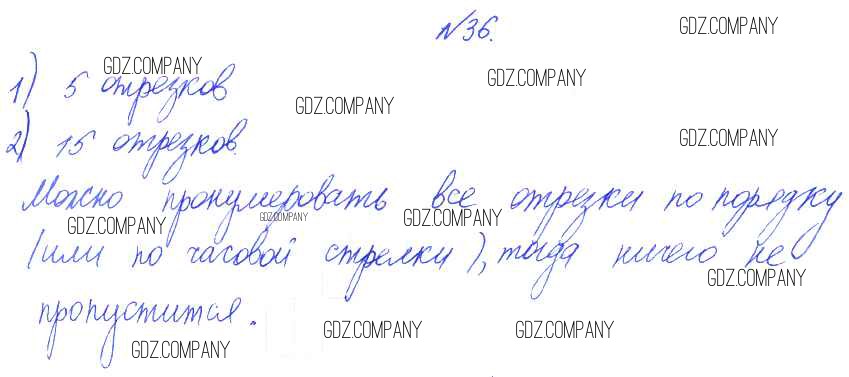 №36.
GDZ.COMPANY
GDZ.COMPANY
GDZ.COMPANY
1) 5 отрезков
GDZ.COMPANY
GDZ.COMPANY
2) 15 отрезков.
Можно пронумеровать все отрезки по порядку
GDZ.COMPANY
GDZ.COMPANY
GDZ.COMPANY
(или по часовой стрелки), тогда ничего не
GDZ.COMPANY
пропустится.
GDZ.COMPANY
GDZ.COMPANY
GDZ.COMPANY